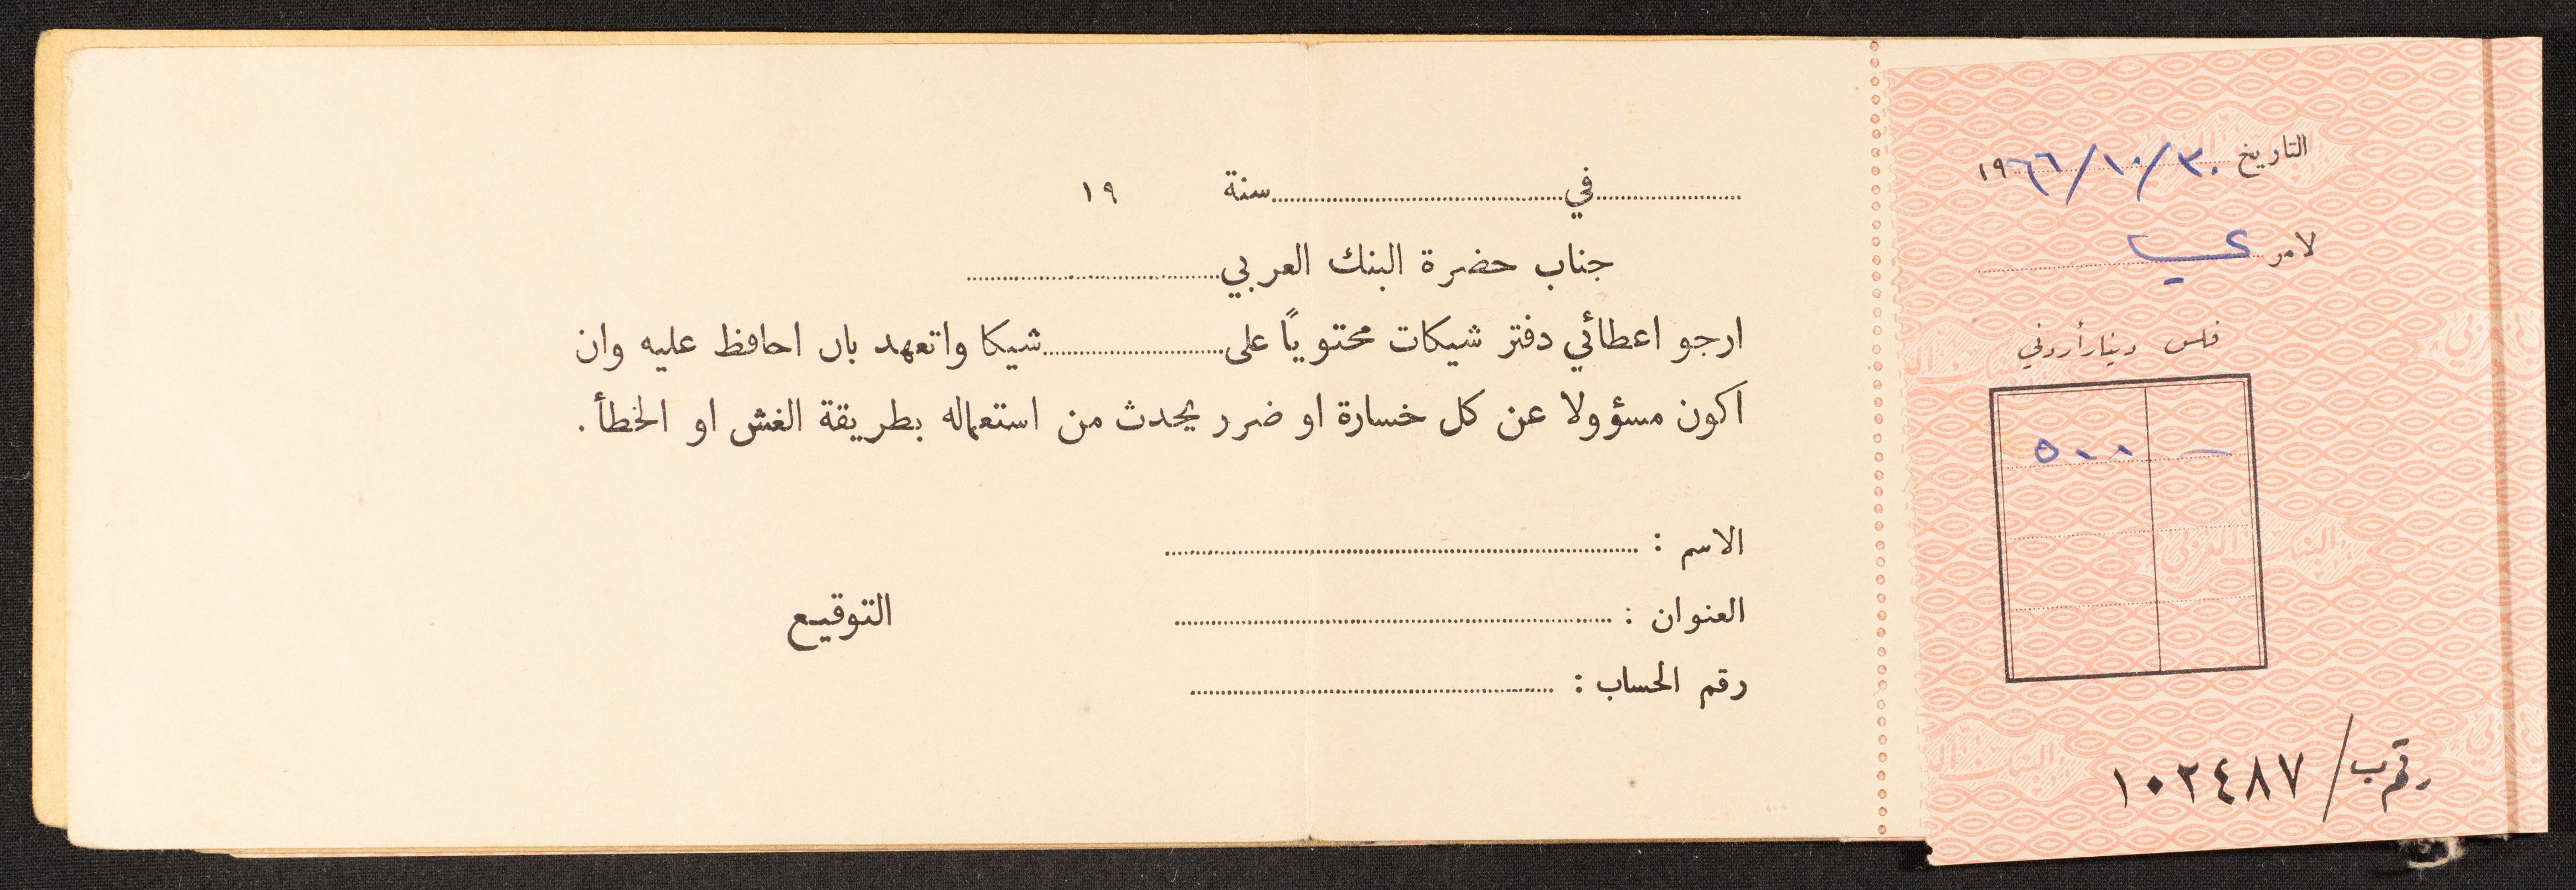 التاريخ ٣٠/١٠/١٩٦٦
لامر
فلس دينار أردني
— ٥٠٠
رقم ب/١٠٢٤٨٧
في سنة ١٩
جناب حضرة البنك العربي
ارجو اعطائي دفتر شيكات محتوياً على شيكا واتعهد بان احافظ عليه وان
اكون مسؤولا عن كل خسارة او ضرر يحدث من استعماله بطريقة الغش او الخطأ.
الاسم :
العنوان :
التوقيع
رقم الحساب :